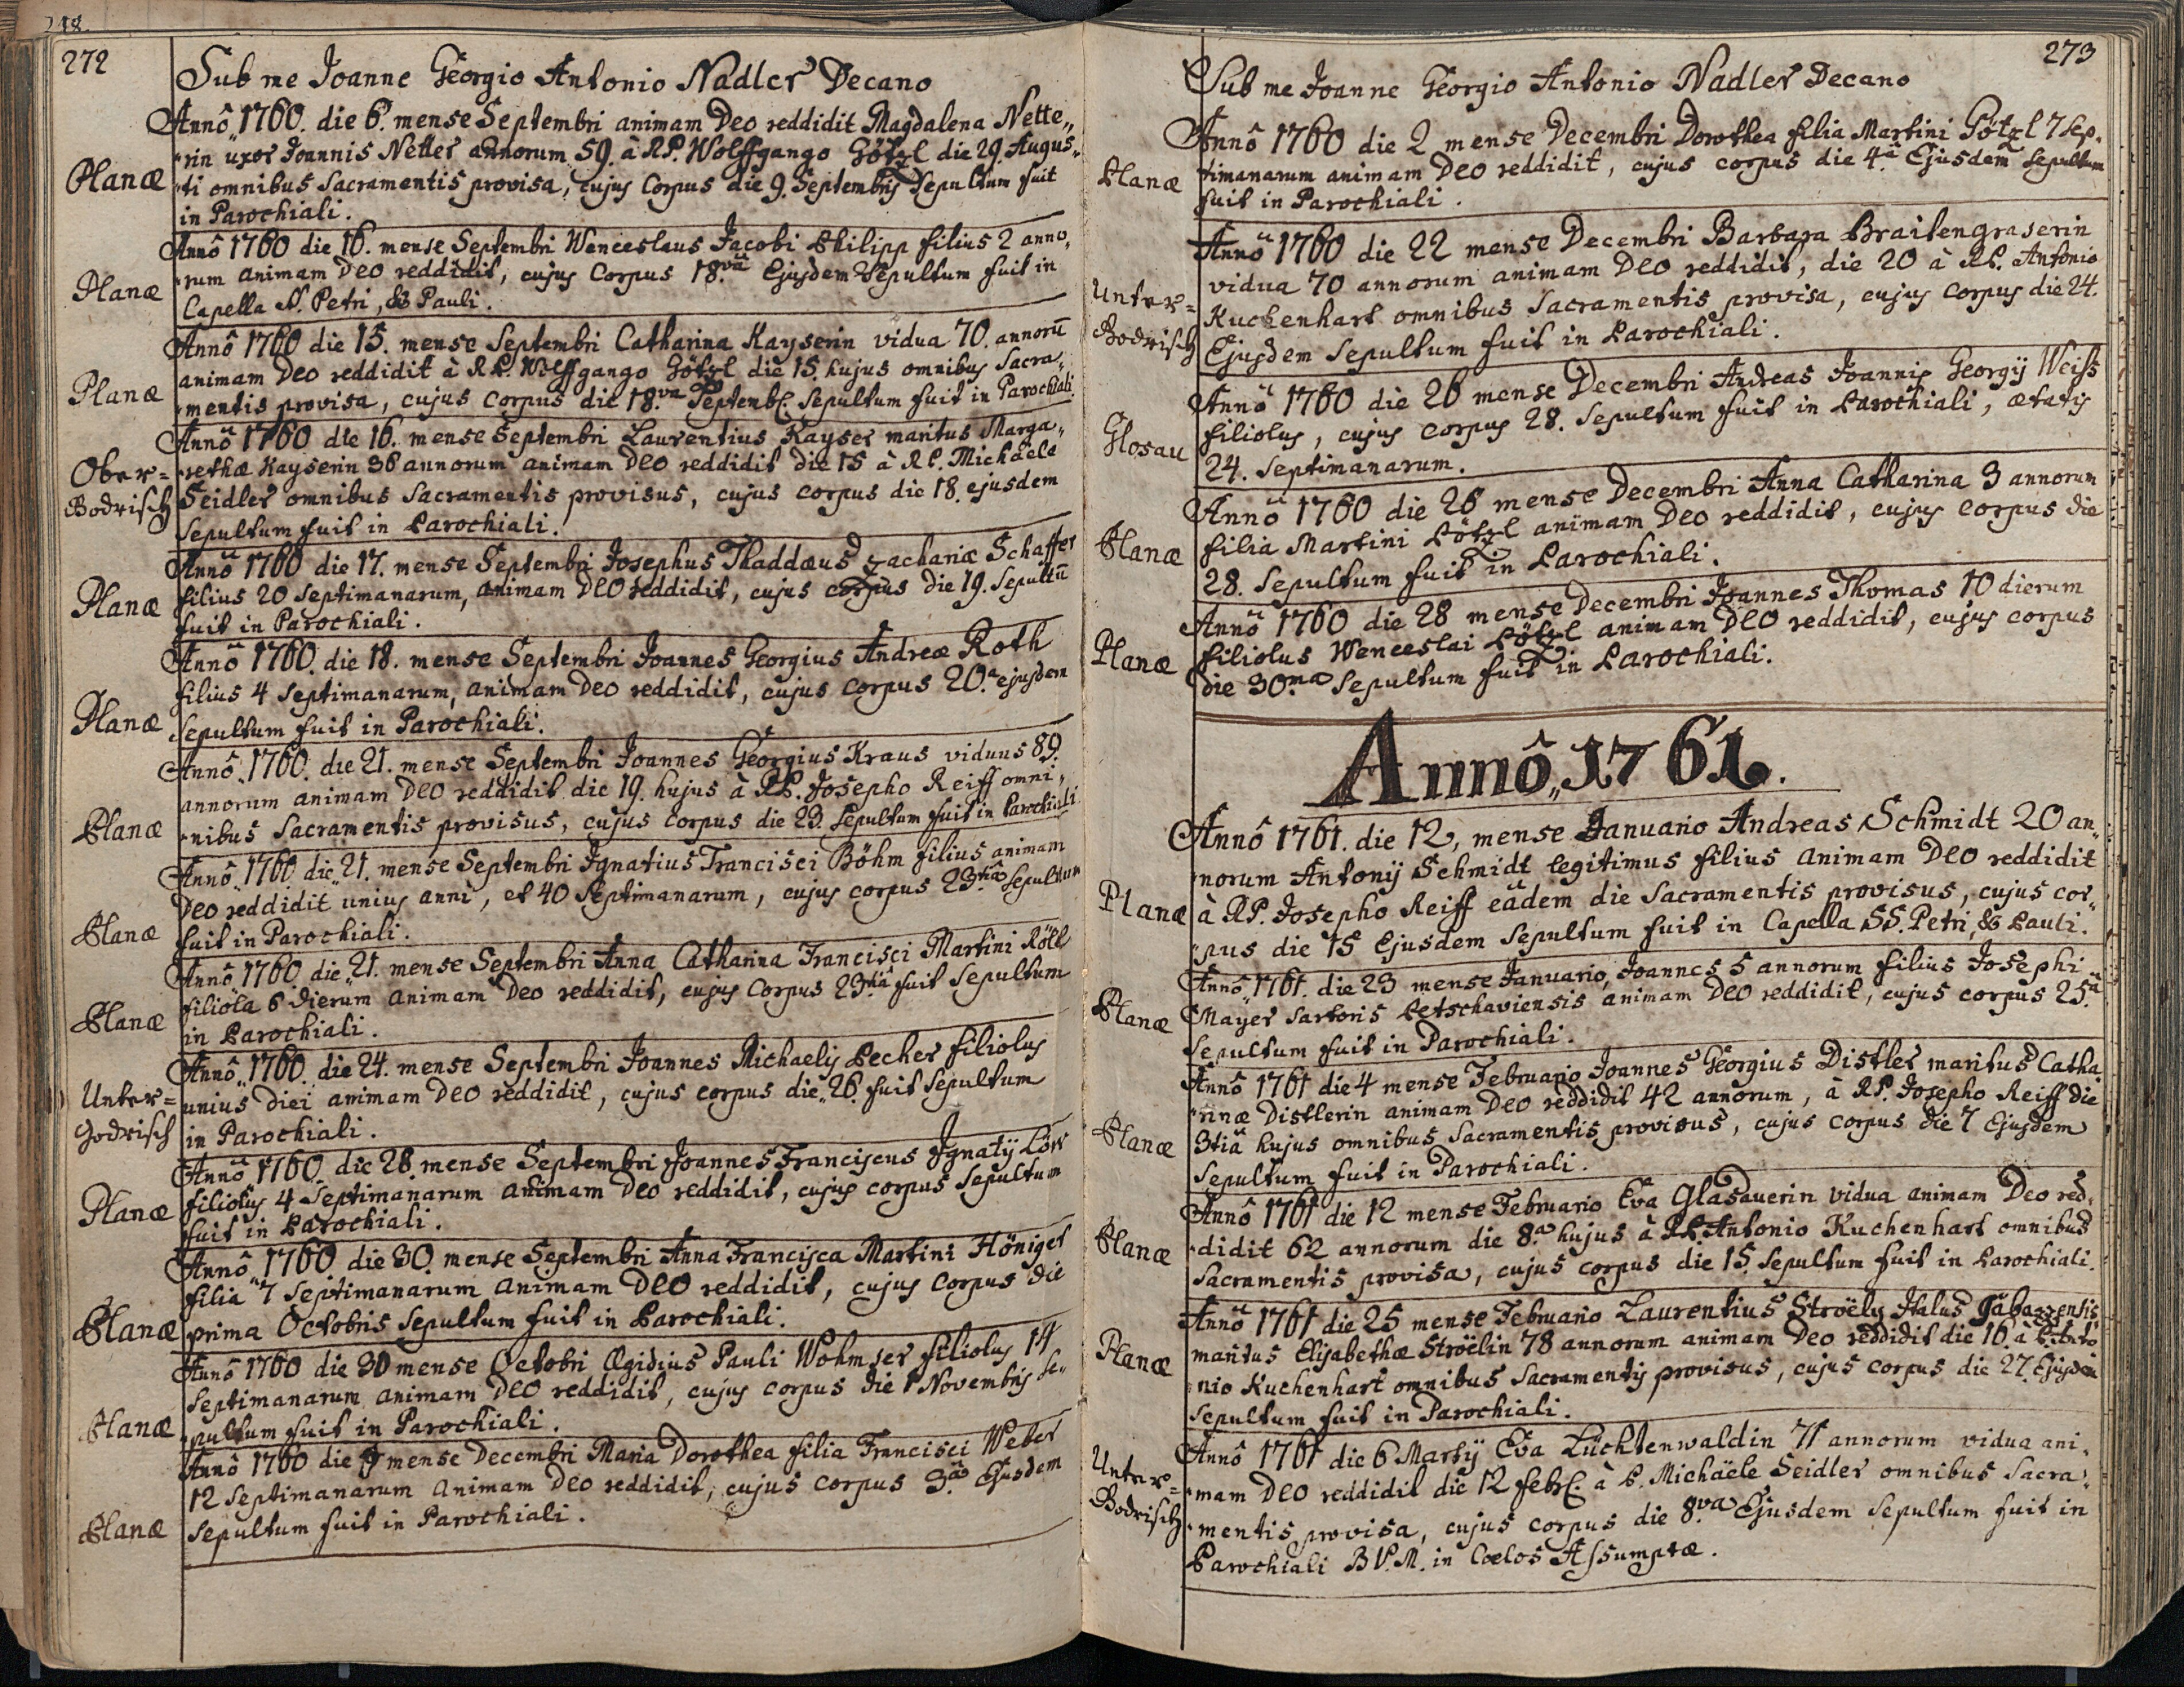 218.
272
Sub me Joanne Georgio Antonio Nadler Decano
Annô 1760. die 6. mense Septembri animam Deo reddidit Magdalena Nette„
„rin uxor Joannis Netter annorum 59. à RP. Wolffgango Götzl die 29. Augus„
Planæ
„ti omnibus Sacramentis provisa, cujus Corpus die 9. Septembris Sepultum fuit
in Parochiali.
Annô 1760 die 16. mense Septembri Wenceslaus Jacobi Philipp filius 2 anno„
Planæ
„rum animam Deo reddidit, cujus Corpus 18.va Ejusdem Sepultum fuit in
Capella S. Petri, & Pauli.
Annô 1760 die 15. mense Septembri Catharina Kayserin vidua 70. annorū
animam Deo reddidit à R.P. Wolffgango Götzl die 15. hujus omnibus Sacra„
Planæ
„mentis provisa, cujus Corpus die 18.va Septemb. Sepultum fuit in Parochiali.
Annô 1760 die 16. mense Septembri Laurentius Kayser maritus Marga„
Ober=
„rethæ Kayserin 36 annorum animam Deo reddidit die 15 à R.P. Michäele
Bodrisch
Seidler omnibus Sacramentis provisus, cujus corpus die 18. ejusdem
Sepultum fuit in Parochiali.
Annô 1760 die 17. mense Septembri Josephus Thaddæus Zachariæ Schaffer
Planæ
filius 20 Septimanarum, animam DEO reddidit, cujus corpus die 19. Sepultū
fuit in Parochiali.
Annô 1760. die 18. mense Septembri Joannes Georgius Andreæ Roth
filius 4 Septimanarum, animam Deo reddidit, cujus Corpus 20.a ejusdem
Planæ
Sepultum fuit in Parochiali.
Annô 1760. die 21. mense Septembri Joannes Georgius Kraus viduus 89.
annorum animam DEO reddidit die 19. hujus à RP. Josepho Reiff omni„
Planæ
„nibus Sacramentis provisus, cujus corpus die 23. Sepultum fuit in Parochiali
Annô 1760. die 21. mense Septembri Ignatius Francisci Böhm filius animam
Deo reddidit unius anni, et 40 Septimanarum, cujus corpus 23.tia Sepultum
Planæ
fuit in Parochiali.
Annô 1760. die 21. mense Septembri Anna Catharina Francisci Martini Röll
filiola 6 dierum animam Deo reddidit, cujus Corpus 23tiâ fuit Sepultum
Planæ
in Parochiali.
Annô 1760. die 24. mense Septembri Joannes Michaelis Pecher filiolus
Unter=
unius diei animam DEO reddidit, cujus corpus die 26. fuit Sepultum
Godrisch
in Parochiali.
Annô 1760. die 28. mense Septembri Joannes Franciscus Ignatÿ Löw
Planæ
filiolus 4 Septimanarum animam Deo reddidit, cujus corpus Sepultum
fuit in Parochiali.
Annô 1760 die 30. mense Septembri Anna Francisca Martini Höniger
filia 7 Septimanarum animam DEO reddidit, cujus Corpus die
Planæ
prima Octobris Sepultum fuit in Parochiali.
Annô 1760 die 30 mense Octobri Ægidius Pauli Wohmser filiolus 14
Septimanarum animam DEO reddidit, cujus corpus die 1 Novembris Se„
Planæ
„pultum fuit in Parochiali.
Annô 1760 die mense Decembri Maria Dorothea filia Francisci Weber
12 Septimanarum animam Deo reddidit, cujus corpus 3.a Ejusdem
Planæ
Sepultum fuit in Parochiali.
273
Sub me Joanne Georgio Antonio Nadler Decano
Annô 1760 die 2 mense Decembri Dorothea filia Martini Götzl 7 Sep„
Planæ
timanarum animam DEO reddidit, cujus corpus die 4.a Ejusdem Sepultum
fuit in Parochiali.
Annô 1760 die 22 mense Decembri Barbara Braitengraserin
vidua 70 annorum animam DEO reddidit, die 20 à R.P. Antonio
Unter=
Kuchenhart omnibus Sacramentis provisa, cujus corpus die 24.
Bodrisch
Ejusdem Sepultum fuit in Parochiali.
Annô 1760 die 26 mense Decembri Andreas Joannis Georgÿ Weiss
Glosau
filiolus, cujus corpus 28. Sepultum fuit in Parochiali, ætatis
24. Septimanarum.
Annô 1760 die 26 mense Decembri Anna Catharina 3 annorum
Planæ
filia Martini Pötzl animam Deo reddidit, cujus corpus die
28. Sepultum fuit in Parochiali.
Annô 1760 die 28 mense Decembri Joannes Thomas 10 dierum
Planæ
filiolus Wenceslai Pötzl animam DEO reddidit, cujus corpus
die 30.ma Sepultum fuit in Parochiali.
Annô„ 1761.
Annô 1761. die 12, mense Januario Andreas Schmidt 20 an„
„norum Antonÿ Schmidt legitimus filius animam DEO reddidit
Planæ
à RP. Josepho Reiff eâdem die Sacramentis provisus, cujus cor„
„pus die 15 Ejusdem Sepultum fuit in Capella SS. Petri, & Pauli.
Annô 1761. die 23 mense Januario, Joannes 5 annorum filius Josephi
Planæ
Mayer Sartoris Petschaviensis animam Deo reddidit, cujus corpus 25.a
Sepultum fuit in Parochiali.
Annô 1761 die 4 mense Februario Joannes Georgius Distler maritus Catha
„rinæ Distlerin animam Deo reddidit 42 annorum, à RP. Josepho Reiff die
Planæ
3tiâ hujus omnibus Sacramentis provisus, cujus corpus die 7 Ejusdem
Sepultum fuit in Parochiali.
Annô 1761 die 12 mense Februario Eva Glasauerin vidua animam Deo red„
Planæ
„didit 62 annorum die 8.a hujus à RP. Antonio Kuchenhart omnibus
Sacramentis provisa, cujus corpus die 15. Sepultum fuit in Parochiali.
Annô 1761 die 25 mense Februario Laurentius Ströely Italus
Planæ
maritus Elisabethæ Ströelin 78 annorum animam Deo reddidit die 16. à P. Anto
„nio Kuchenhart omnibus Sacramentis provisus, cujus corpus die 27. Ejusdē
Sepultum fuit in Parochiali.
Annô 1761 die 6 Martÿ Eva Lüchtenwaldin 71 annorum vidua ani„
Unter=
„mam DEO reddidit die 12 feb. à P. Michäele Seidler omnibus Sacra„
Bodrisch
„mentis provisa, cujus corpus die 8.va Ejusdem Sepultum fuit in
Parochiali B.V.M. in Cœlos Assumptæ.